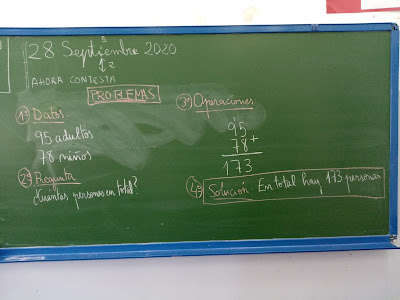 28 Septiembre 2020
AHORA CONTESTA
PROBLEMAS
1º Datos:
95 adultos
78 niños
2º Pregunta
¿Cuántas personas en total?
3º Operaciones:
95
78 +
173
4º Solución: En total hay 173 personas